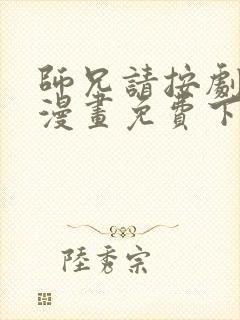 師兄請按劇
漫畫免費下
陸秀宗